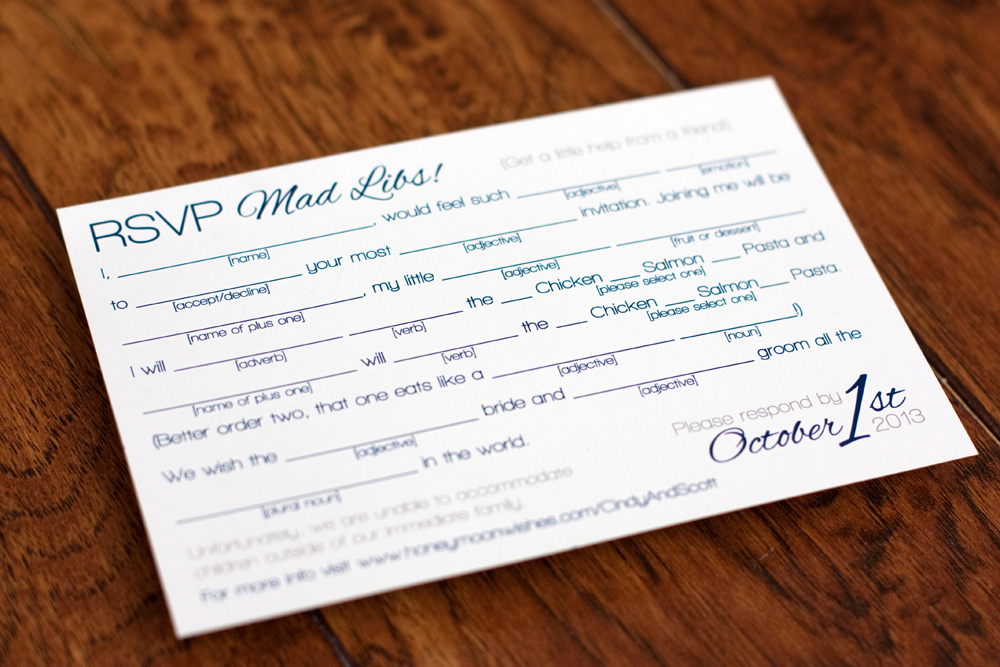 RSVP Mad Libs!
(Get a little help from a friend)
I, ____, would feel such ____ ____
[name] [adjective] [emotion]
to ____ your most ____ invitation. Joining me will be
[accept/decline] [adjective]
____, my little ____ ____
[name of plus one] [adjective] [fruit or dessert]
I will ____ ____ the ___ Chicken ___ Salmon ___ Pasta and
[adverb] [verb] [please select one]
____ will ____ the ___ Chicken ___ Salmon ___ Pasta.
[name of plus one] [verb] [please select one]
(Better order two, that one eats like a ____ ____!)
[adjective] [noun]
We wish the ____ bride and ____ groom all the
[adjective] [adjective]
____ in the world.
[plural noun]
Please respond by
October 1st
2013
Unfortunately, we are unable to accommodate
children outside of our immediate family.
For more info visit www.honeymoonwishes.com/CindyAndScott